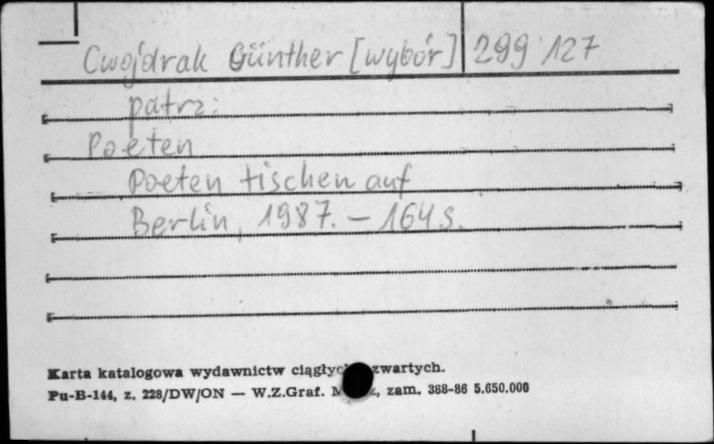 Cwojdrak Günther [wybór] 299 127
patrz:
Poeten
Poeten tischen auf
Berlin, 1987. – 164 s.
Karta katalogowa wydawnictw zwartych.
Pu-B-144, z. 228/DW/ON — W.Z.Graf. zam. 388-86 5.650.000